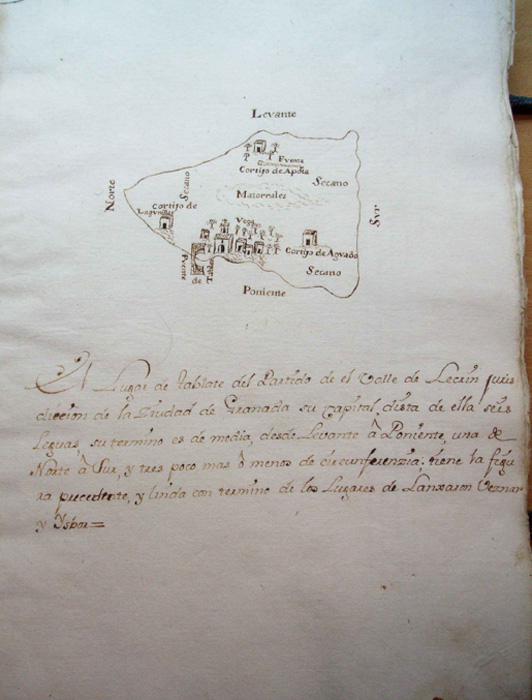 Levante
Norte
Fuente
Cortijo de Apola
Secano
Secano
Matorrales
Sur
Cortijo de
Lagunillas
Vega
Cortijo de Aguado
Puente
de
Tablate
Secano
Poniente
El Lugar de tablate del Partido de el Valle de Lecrin juris
diccion de la Ziudad de Granada su Capital, dista de ella seis
Leguas, su termino es de media, desde Levante â Poniente, una de
Norte â Sur, y tres poco mas ô menos de circunferenzia: tiene la figu
ra precedente, y linda con termino de los Lugares de Lanxaron Veznar
y Ysbor=